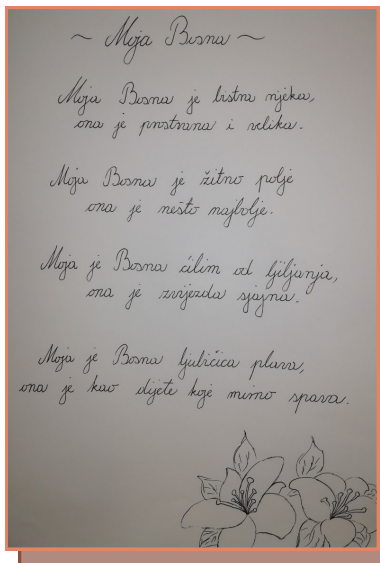 ~ Moja Bosna ~
Moja Bosna je bistra rijeka,
ona je prostrana i velika.
Moja Bosna je žitno polje
ona je nešto najbolje.
Moja je Bosna ćilim od ljiljanja,
ona je zvijezda sjajna.
Moja je Bosna ljubičica plava,
ona je kao dijete koje mirno spava.